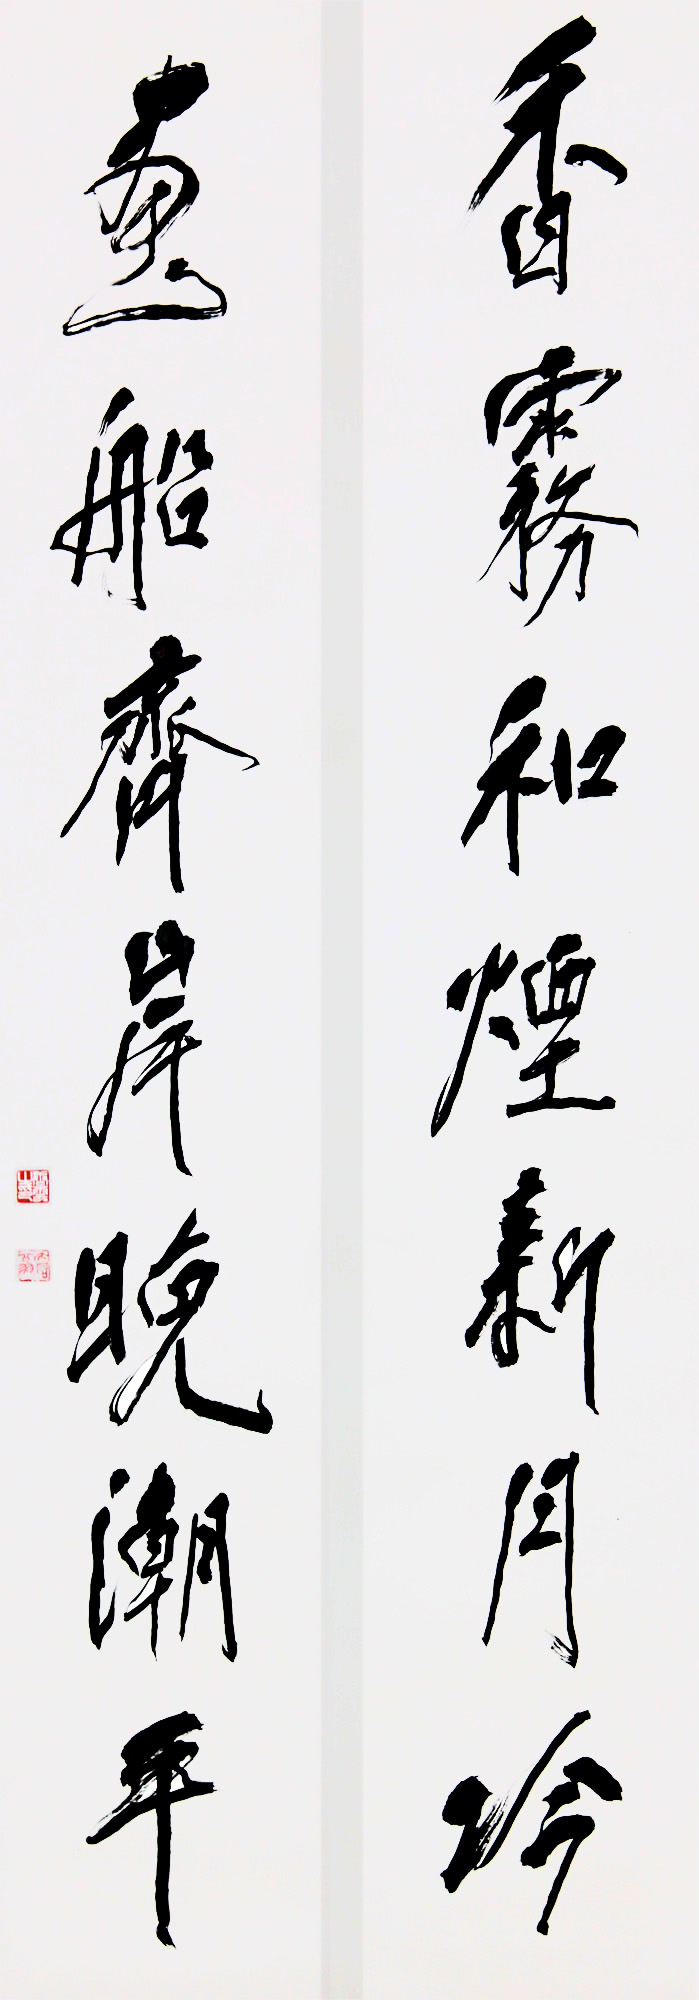 香霧和煙新月吟
畫船齊岸晚潮平